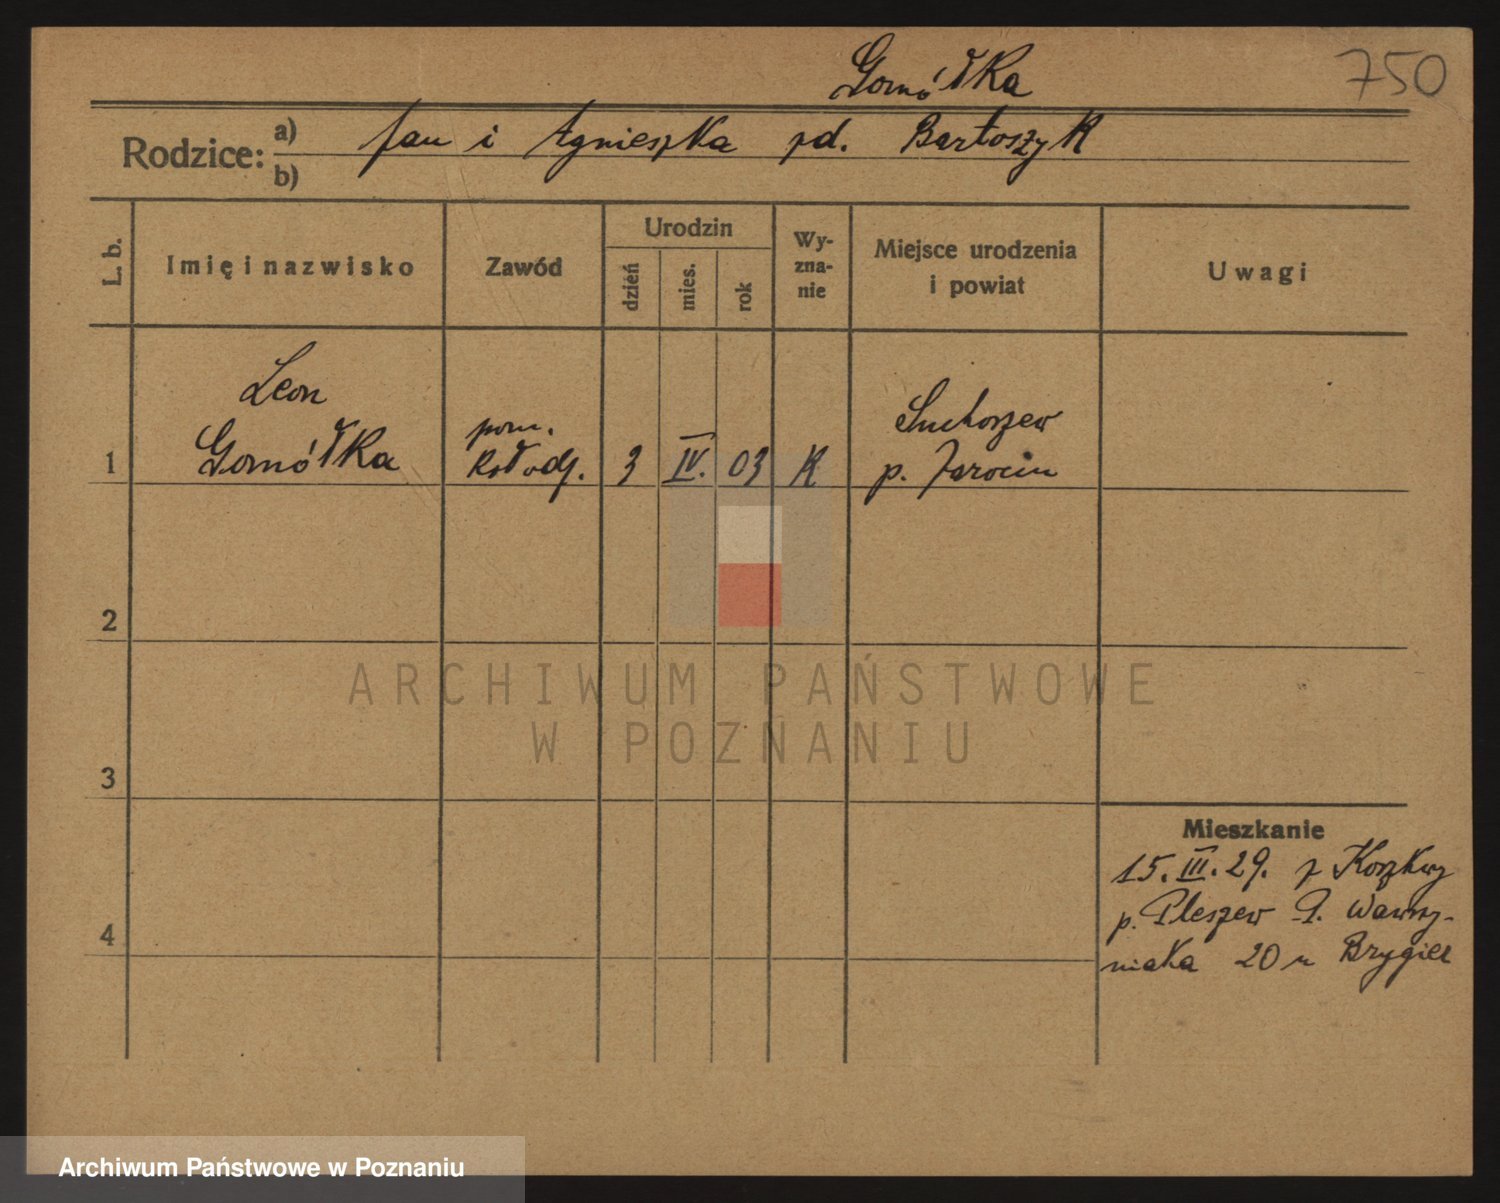 Gomółka
750
Rodzice: a) Jan i Agnieszka zd. Bartoszyk
b)
L. b.
Imię i nazwisko
Zawód
Urodzin
dzień
mies.
rok
Wy-
zna-
nie
Miejsce urodzenia
i powiat
Uwagi
Leon
Gomółka
pom.
kołodz.
1
3
IV.
03
K
Suchorzew
p. Jarocin
2
3
4
Mieszkanie
15.III.29. z
p. Pleszew P. Wawrzy-
niaka 20 u
ARCHIWUM PAŃSTWOWE
W POZNANIU
Archiwum Państwowe w Poznaniu